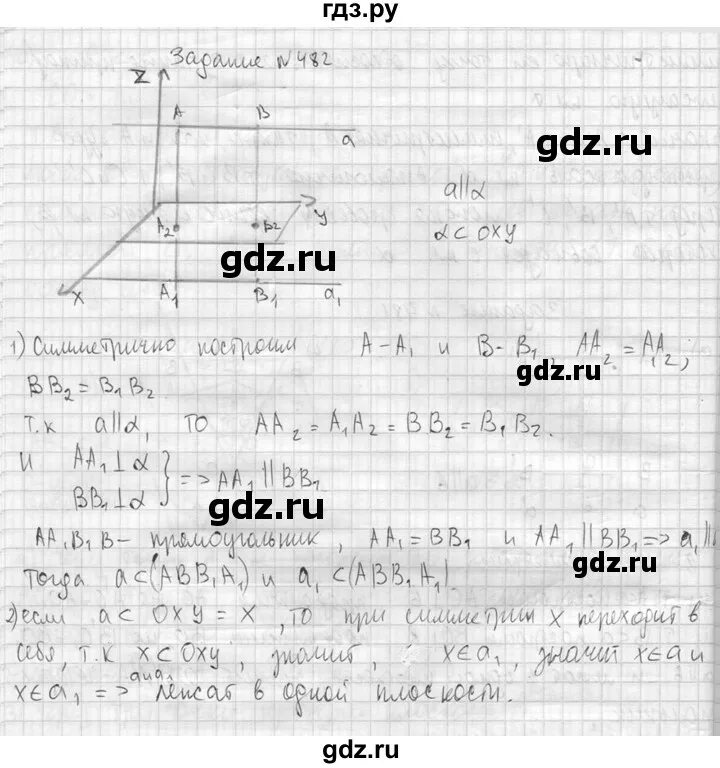 гдз.ру
Задание №482
Z
A
B
a
gdz.ru
a∥α
α⊂OXY
A₂
B₂
y
gdz.ru
X
A₁
B₁
a₁
1) Симметрично построим A-A₁ и B-B₁, AA₂=A₁A₂;
gdz.ru
BB₂=B₁B₂
т.к a∥α, то AA₂=A₁A₂=BB₂=B₁B₂.
И AA₁⊥α
BB₁⊥α } => AA₁∥BB₁
gdz.ru
AA₁B₁B- прямоугольник, AA₁=BB₁ и AA₁∥BB₁=> a₁∥
gdz.ru
Тогда a⊂(ABB₁A₁) и a₁⊂(ABB₁A₁).
2) если a⊂OXY=X, то при симметрии X переходит в
себя, т.к X⊂OXY, значит, X∈a₁, значит X∈a и
gdz.ru
X∈a₁ => a и a₁ лежат в одной плоскости.
gdz.ru